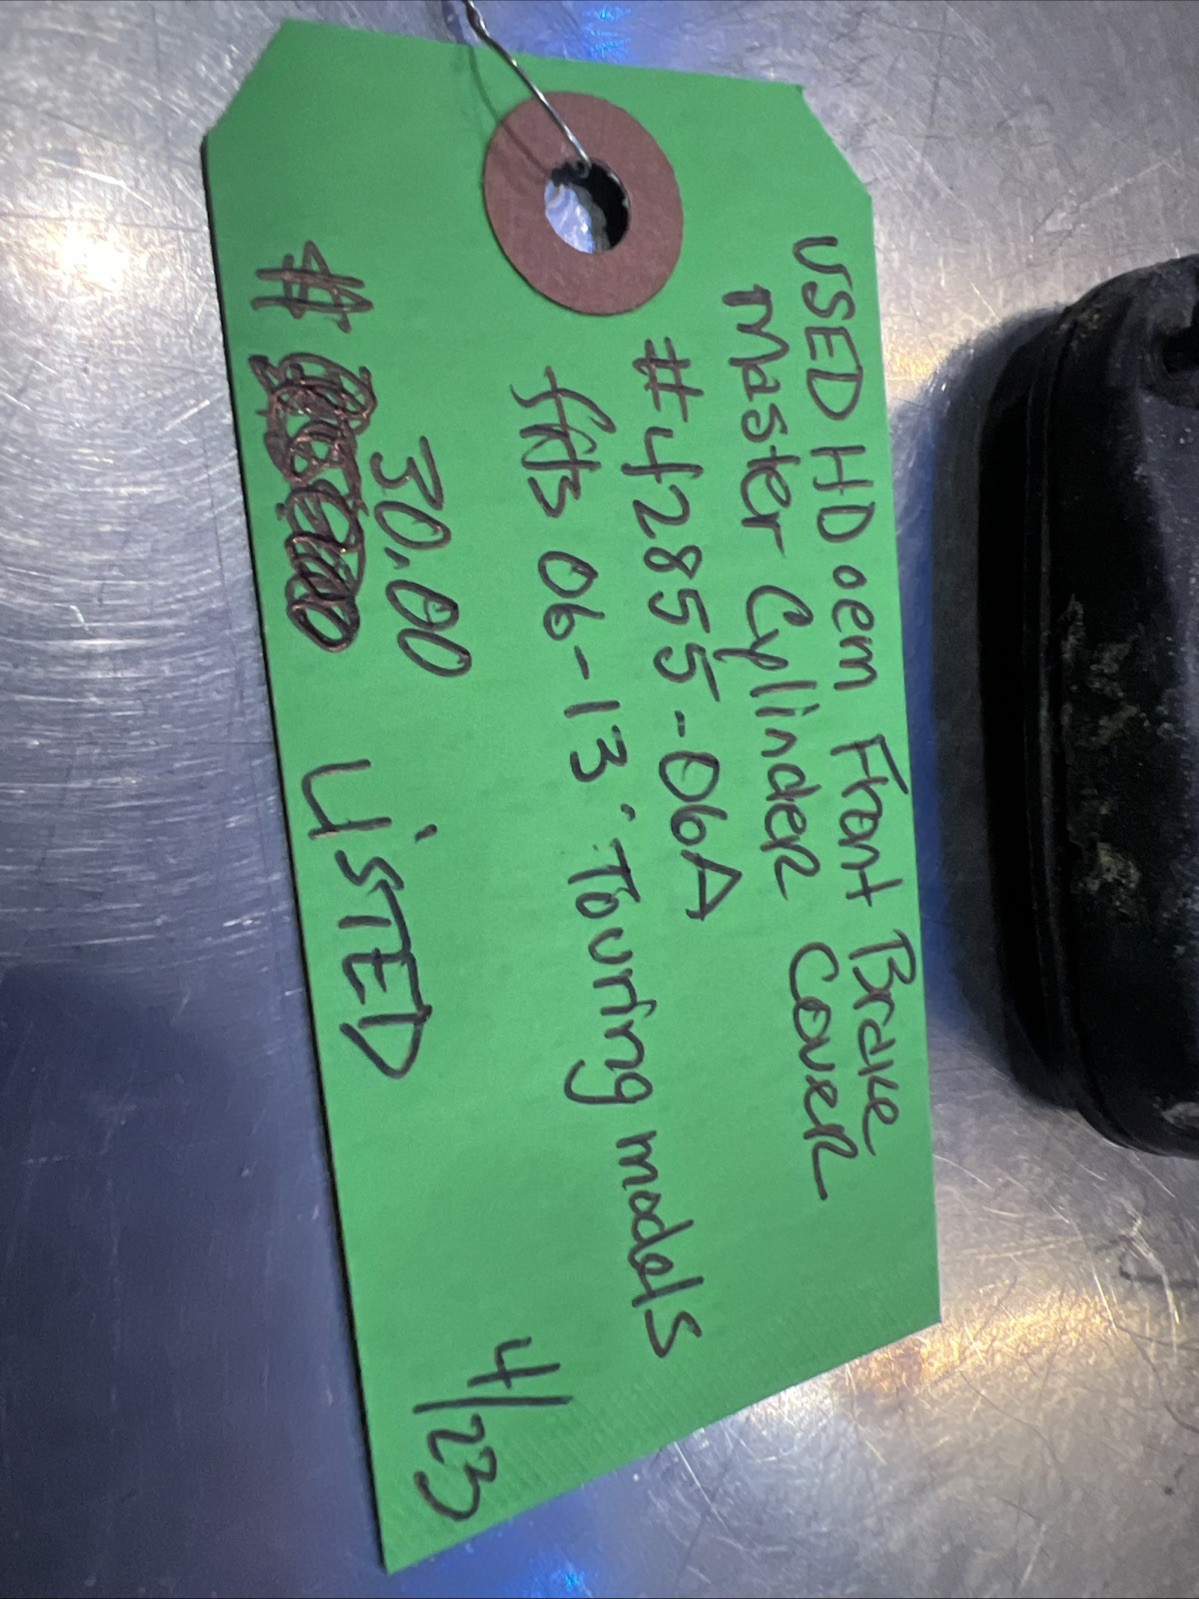 USED HD oem Front Brake
Master Cylinder Cover
#42855-06A
fits 06-13 Touring models
30.00
#
LiSTED
4/23